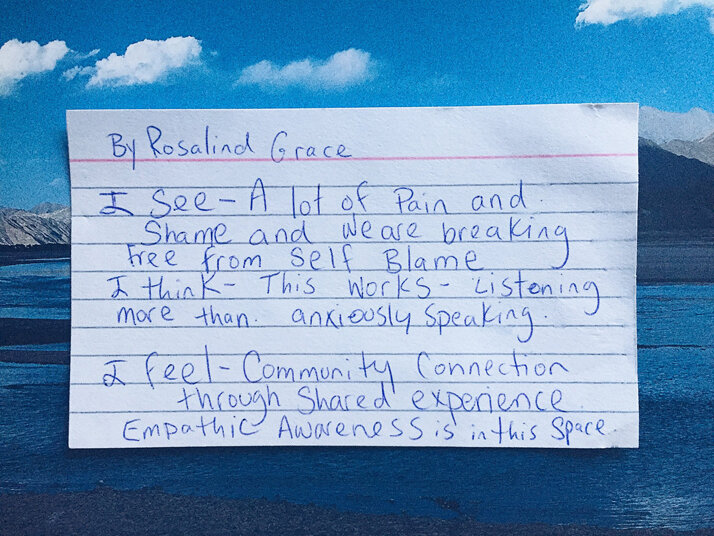 By Rosalind Grace
I See - A lot of Pain and
Shame and we are breaking
Free from Self Blame
I think - This works - Listening
more than. anxiously speaking.
I feel - Community Connection
through Shared experience.
Empathic Awareness is in this Space.